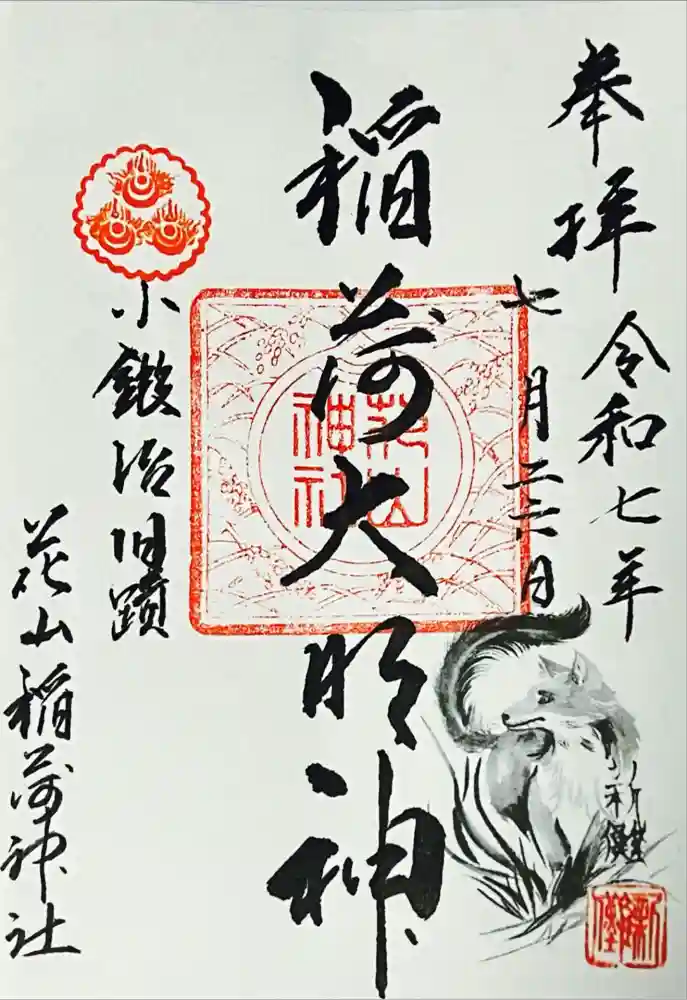 奉拝
令和七年
七月二十六日
稲荷大明神
花山
神社
小鍛冶旧蹟
花山稲荷神社